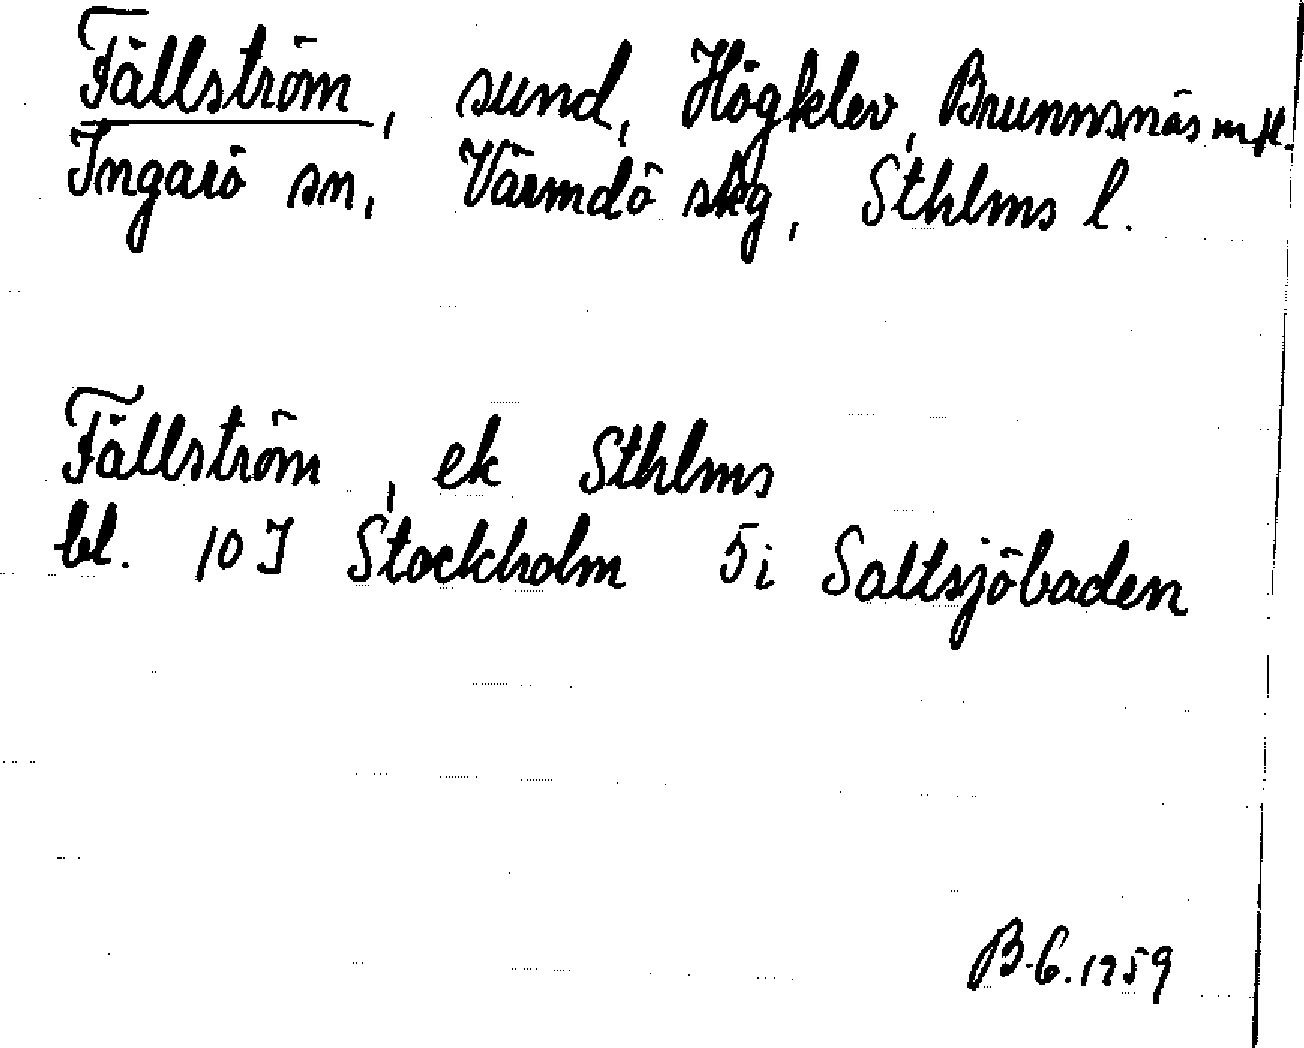 Fällström, sund, Högklev, Brunnsnäs m fl.
Ingarö sn, Värmdö skg, Sthlms l.
Fällström, ek Sthlms
bl. 10 I Stockholm 5i Saltsjöbaden
B-6.1959